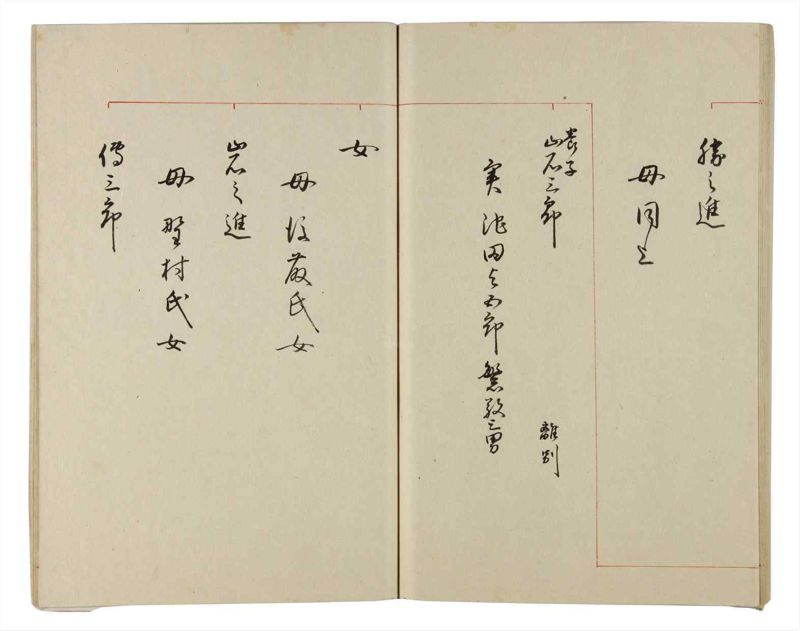 勝之進
母同上
養子
岩三郎
離別
実池田与五郎繁致三男
女
母後藤氏女
岩之進
母野村氏女
傳三郎